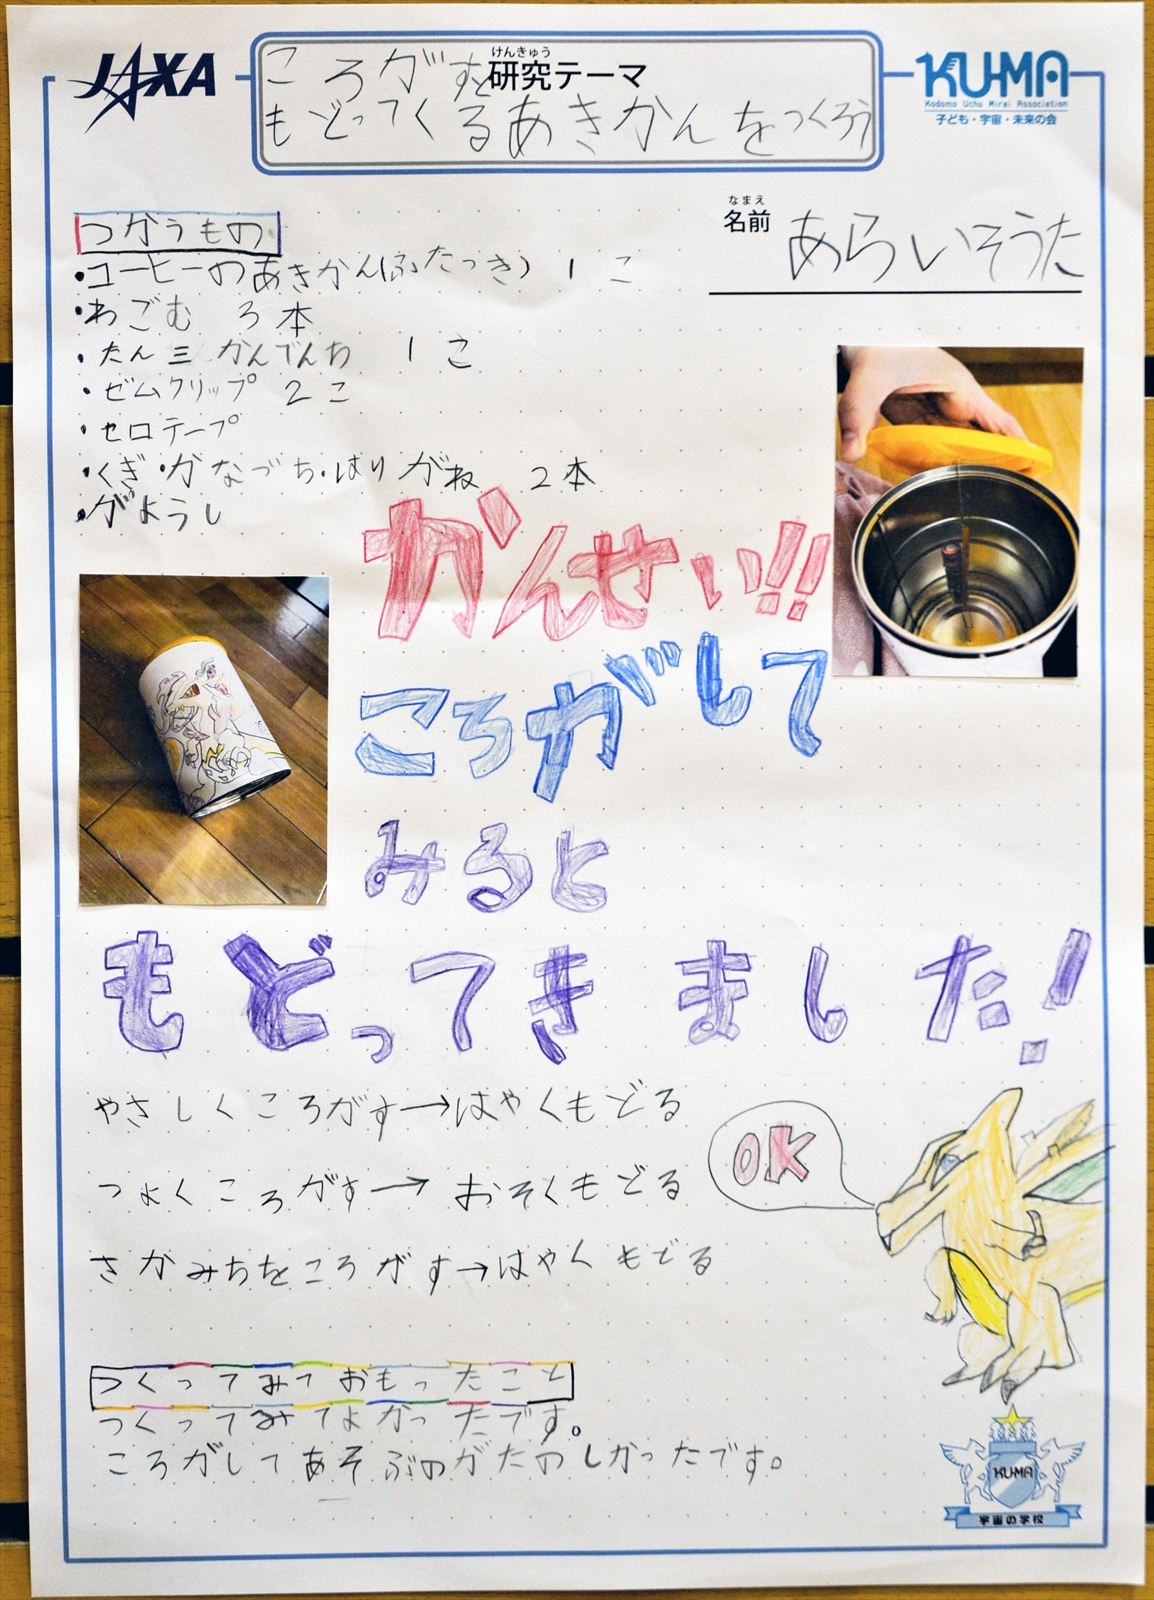 JAXA
けんきゅう
研究テーマ
ころがすと
もどってくるあきかんをつくろう
KU-MA
Kodomo Uchu Mirai Association
子ども・宇宙・未来の会
なまえ
名前
あらいそうた
つかうもの
・コーヒーのあきかん(ふたつき) 1こ
・わごむ 3本
・たん三かんでんち 1こ
・ゼムクリップ 2こ
・セロテープ
・くぎ・かなづち・はりがね 2本
・がようし
かんせい!!
ころがして
みると
もどってきました!
やさしくころがす→はやくもどる
つよくころがす→おそくもどる
さかみちをころがす→はやくもどる
OK
つくってみておもったこと
つくってみてよかったです。
ころがしてあそぶのがたのしかったです。
KU-MA
宇宙の学校